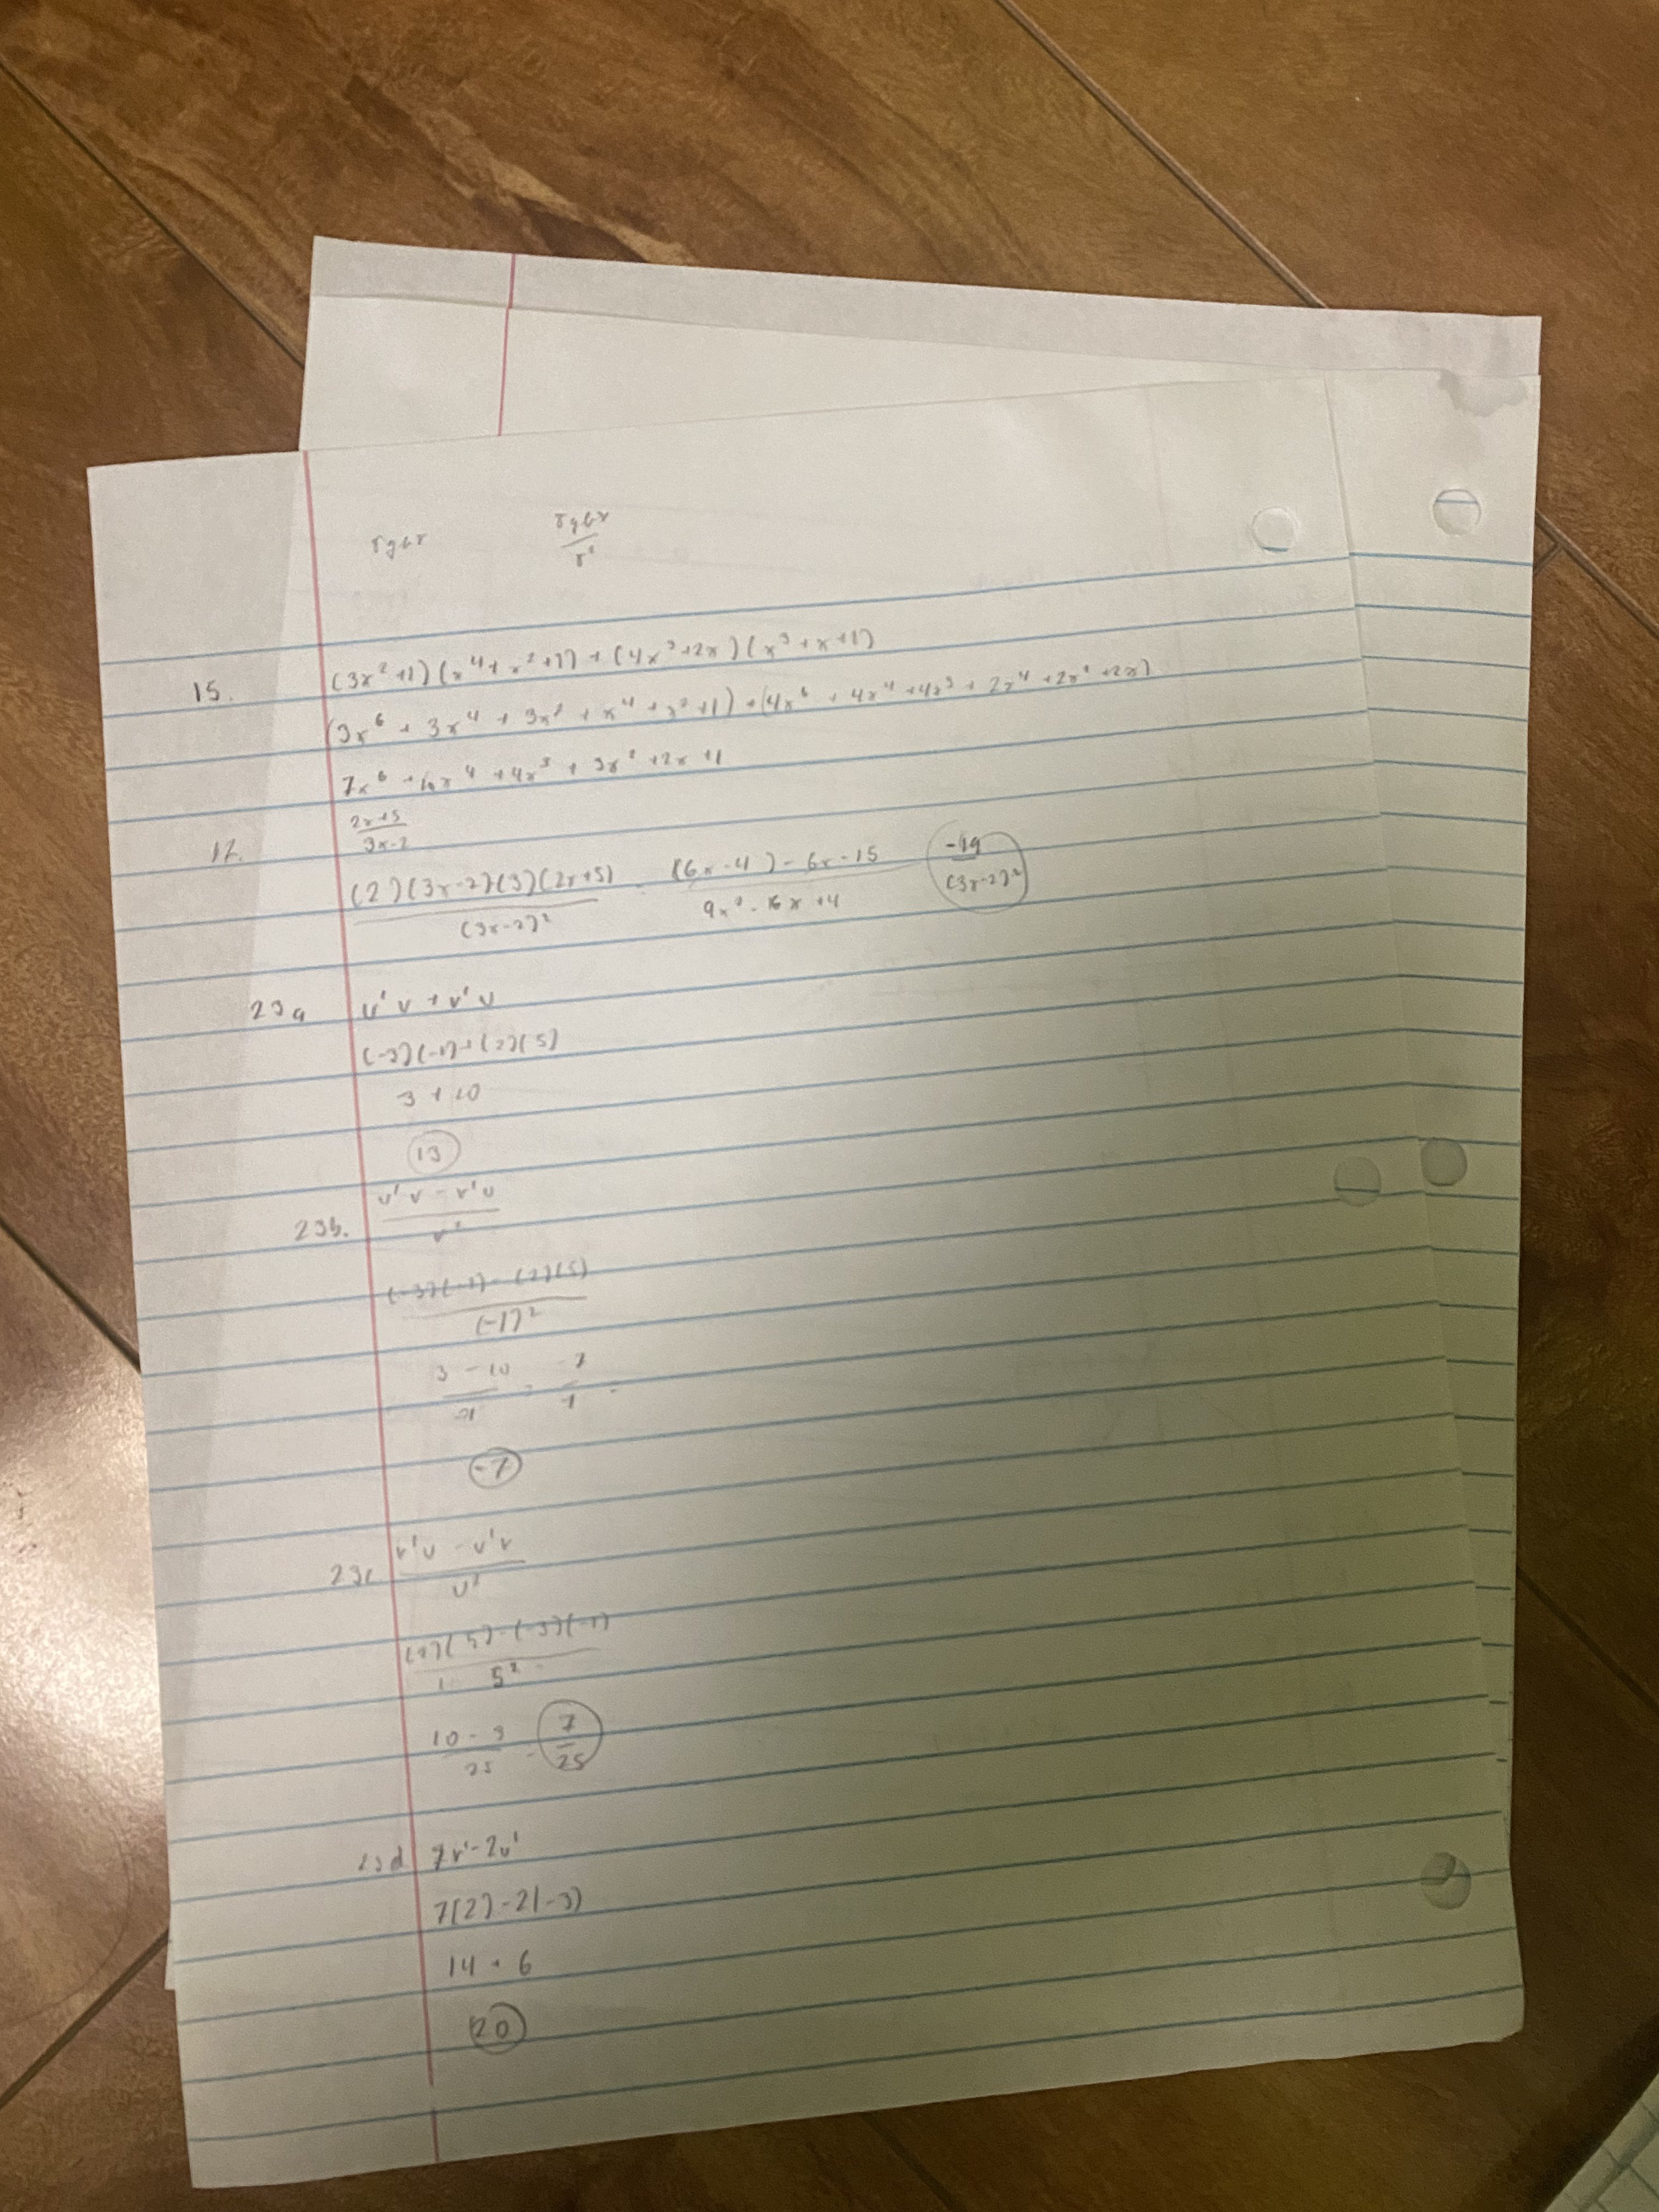 15. (3x² +1)(x⁴+ x² +1) + (4x³+2x)(x³ + x +1)
(3x⁶ + 3x⁴ + 3x² + x⁴ + x² +1) + (4x⁶ + 4x⁴ +4x³ + 2x⁴ +2x² +2x)
7x⁶ + 10x⁴ +4x³ + 9x² +2x +1
17. 2x+5 / 3x-2
(2)(3x-2)-(3)(2x+5) / (3x-2)² = (6x-4) - 6x-15 / 9x² - 16x +4 -19 / (3x-2)²
23a u'v + v'u
(-3)(-1)+(2)(5)
3 + 10
13
23b. u'v - v'u / v²
(-3)(-1) - (2)(5) / (-1)²
3 - 10 / 1 = -7 / 1 =
-7
23c v'u - u'v / u²
(2)(5)-(-3)(-1) / 5²
10 - 3 / 25 = 7 / 25
23d 7v'-2u'
7(2)-2(-3)
14 + 6
20